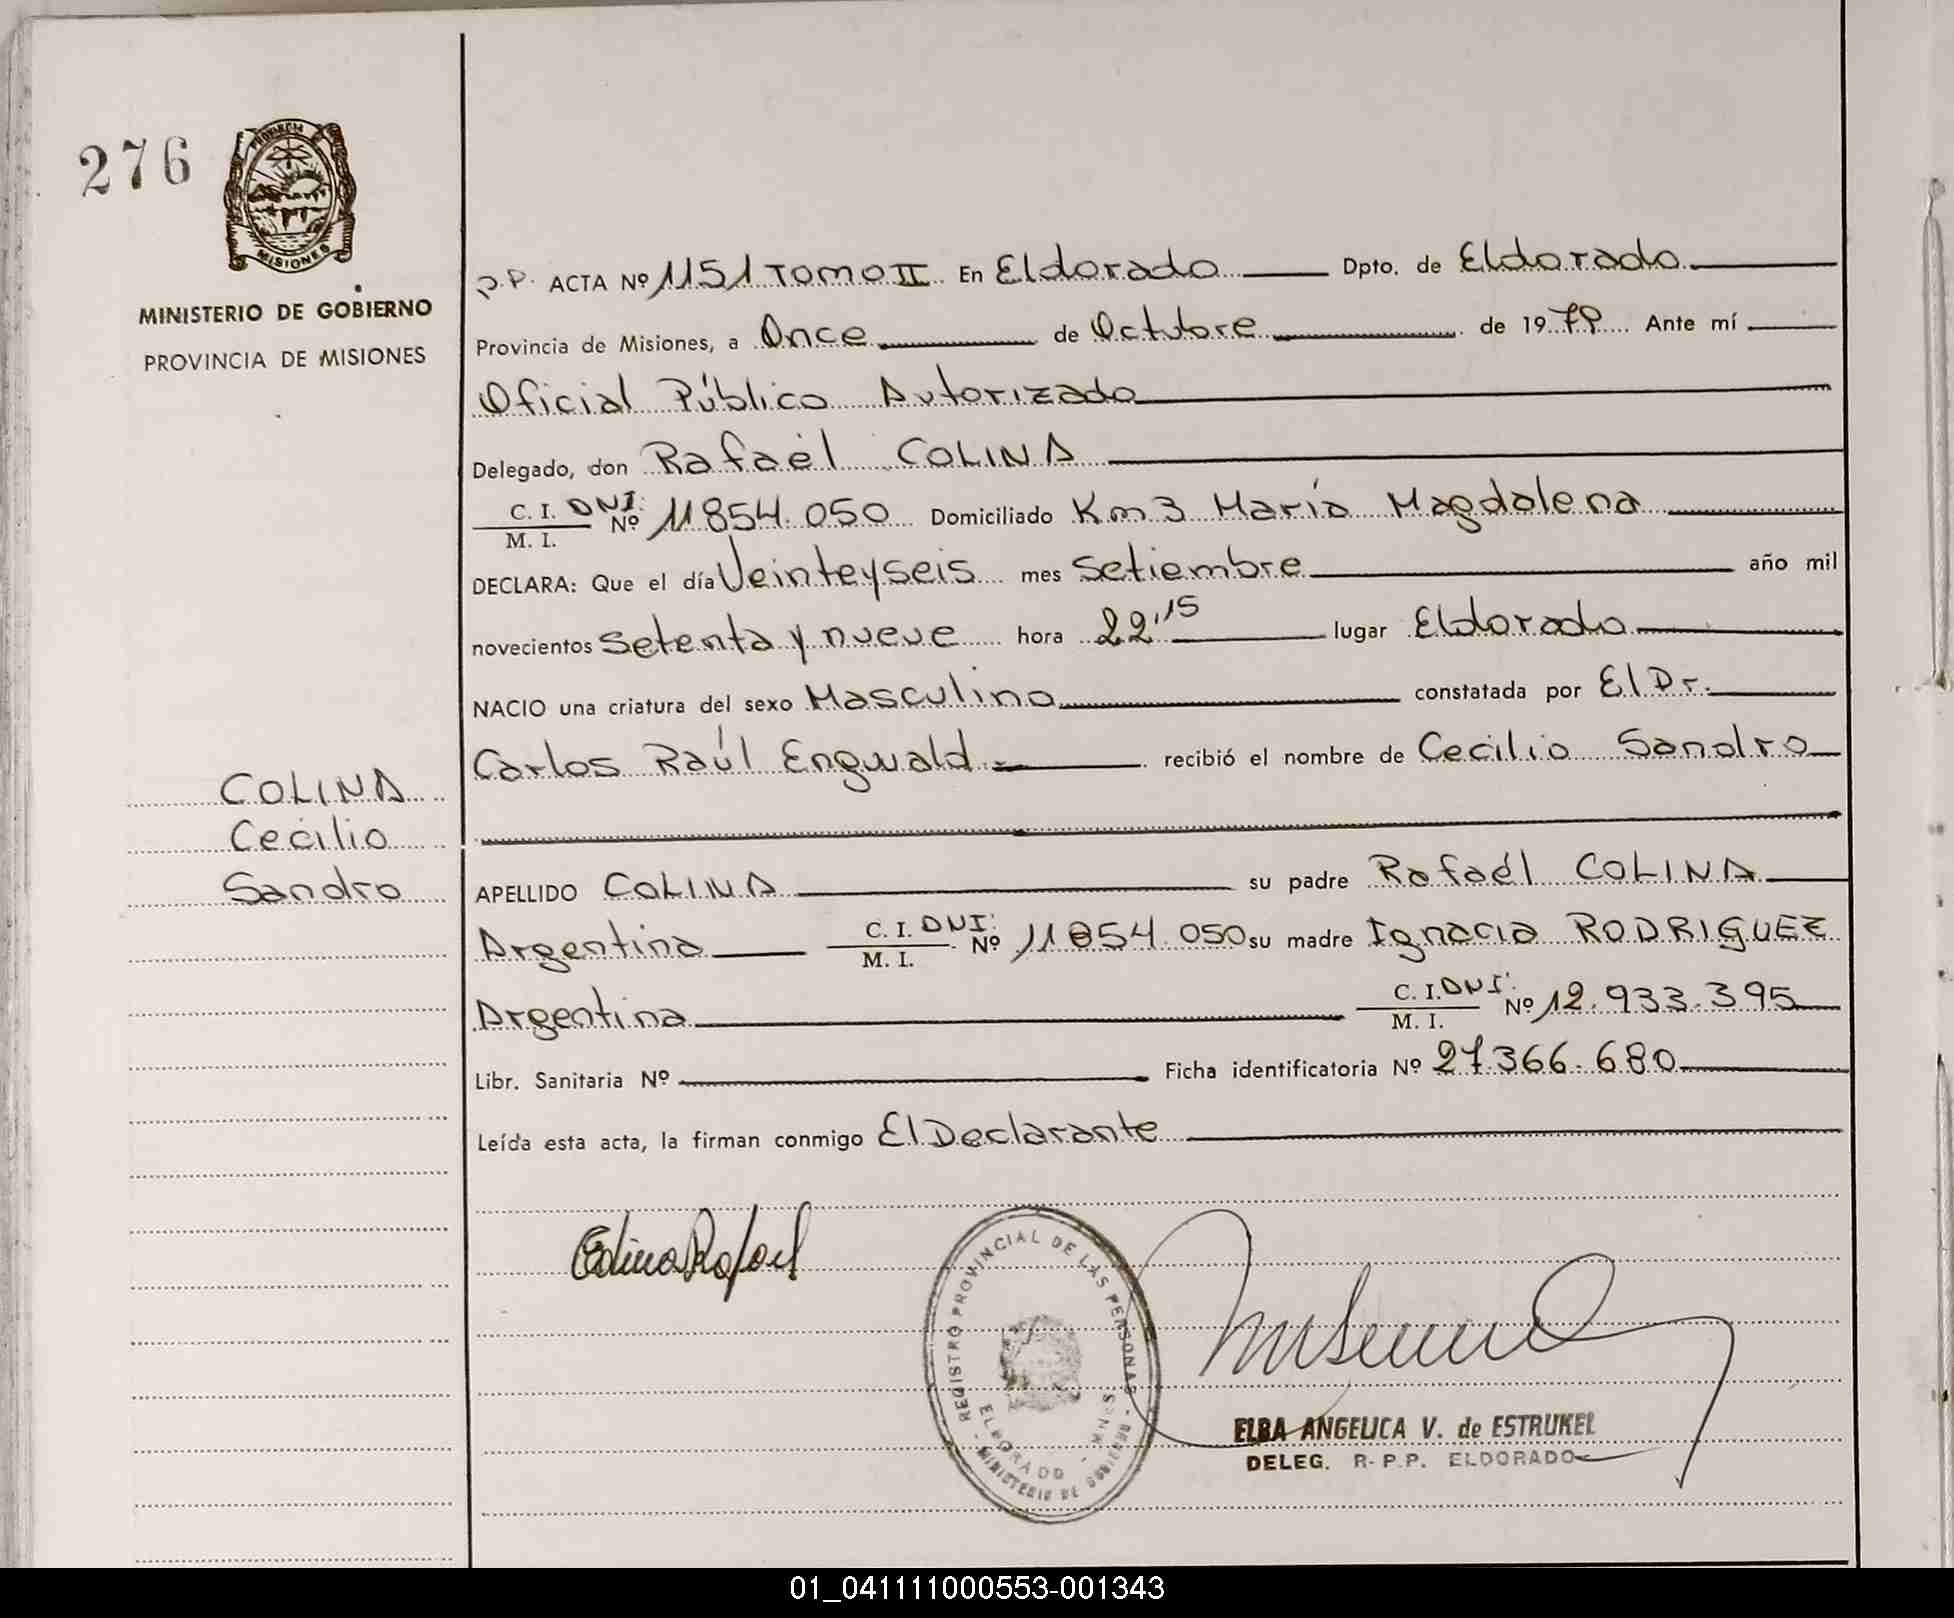 276
PROVINCIA
MISIONES
MINISTERIO DE GOBIERNO
PROVINCIA DE MISIONES
P.P. ACTA Nº 1151 TOMO II En Eldorado Dpto. de Eldorado
Provincia de Misiones, a Once de Octubre de 1979 Ante mí
Oficial Público Autorizado
Delegado, don Rafaél COLINA
C. I. DNI: Nº 11854.050 Domiciliado Km 3 María Magdalena
M. I.
DECLARA: Que el día Veinteyseis mes Setiembre año mil
novecientos Setenta y nueve hora 22,15 lugar Eldorado
NACIO una criatura del sexo Masculino constatada por El Dr.
Carlos Raúl Engwald recibió el nombre de Cecilio Sandro
COLINA
Cecilio
Sandro
APELLIDO COLINA su padre Rafaél COLINA
Argentina C. I. DNI: Nº 11854.050 su madre Ignacia RODRIGUEZ
M. I.
Argentina C. I. DNI: Nº 12.933.395
M. I.
Libr. Sanitaria Nº Ficha identificatoria Nº 27.366.680
Leída esta acta, la firman conmigo El Declarante
Colina Rafael
REGISTRO PROVINCIAL DE LAS PERSONAS
ELDORADO - MNES
MINISTERIO DE GOBIERNO
ELBA ANGELICA V. de ESTRUKEL
DELEG. R-P.P. ELDORADO
01_041111000553-001343